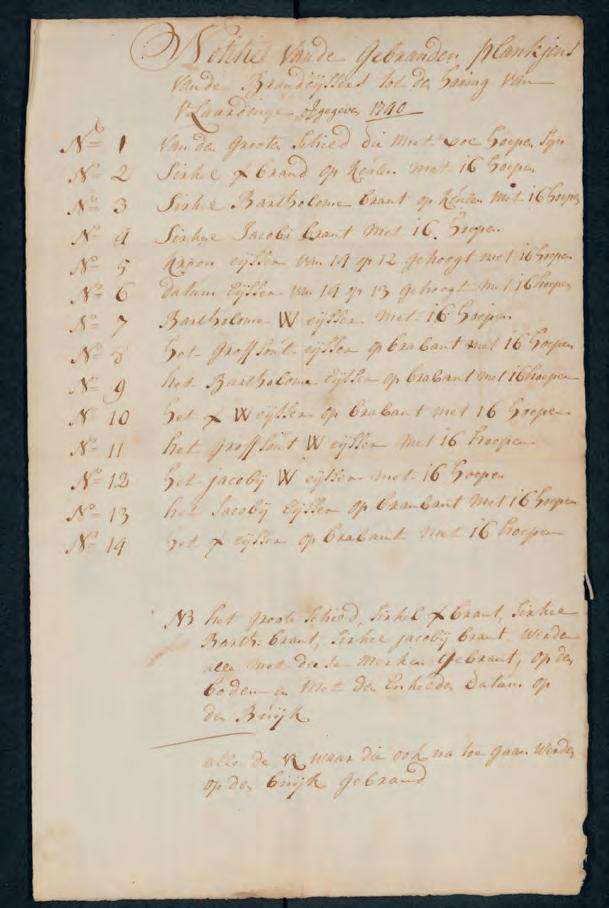 Notitie vande Gebranden plankjens
vande Brandeijssers tot den haring van
Vlaardinge opgegeven 1740
No 1 Van den Grooten Schied die moet hoepen sijn
No 2 Sirkel X brand op Keulen met 16 hoepen
No 3 Sirkel Bartholome brant op Keulen met 16 hoepen
No 4 Sirkel Jacobi brant met 16 hoepen
No 5 Kroon eijsser van 14 op 12 gehoogt met 16 hoepen
No 6 datum eijsser van 14 op 13 gehoogt met 16 hoepen
No 7 Bartholome W eijsser met 16 hoepen
No 8 het Groffsout eijsser op brabant met 16 hoepen
No 9 het Bartholome eijsser op brabant met 16 hoepen
No 10 het X W eijsser op brabant met 16 hoepen
No 11 het groffsout W eijsser met 16 hoepen
No 12 het jacobij W eijsser met 16 hoepen
No 13 het Jacobij eijsser op braabant met 16 hoepen
No 14 het X eijsser op brabant met 16 hoepen
NB het groote Schied, Sirkel X brant, Sirkel
Barth. brant, Sirkel jacobij brant, Werden
alle met dese merken Gebrant, op den
boden en Met den Enkelden Datum op
den Buijk
alle de waar die ook na toe gaan Werden
op den buijk gebrand